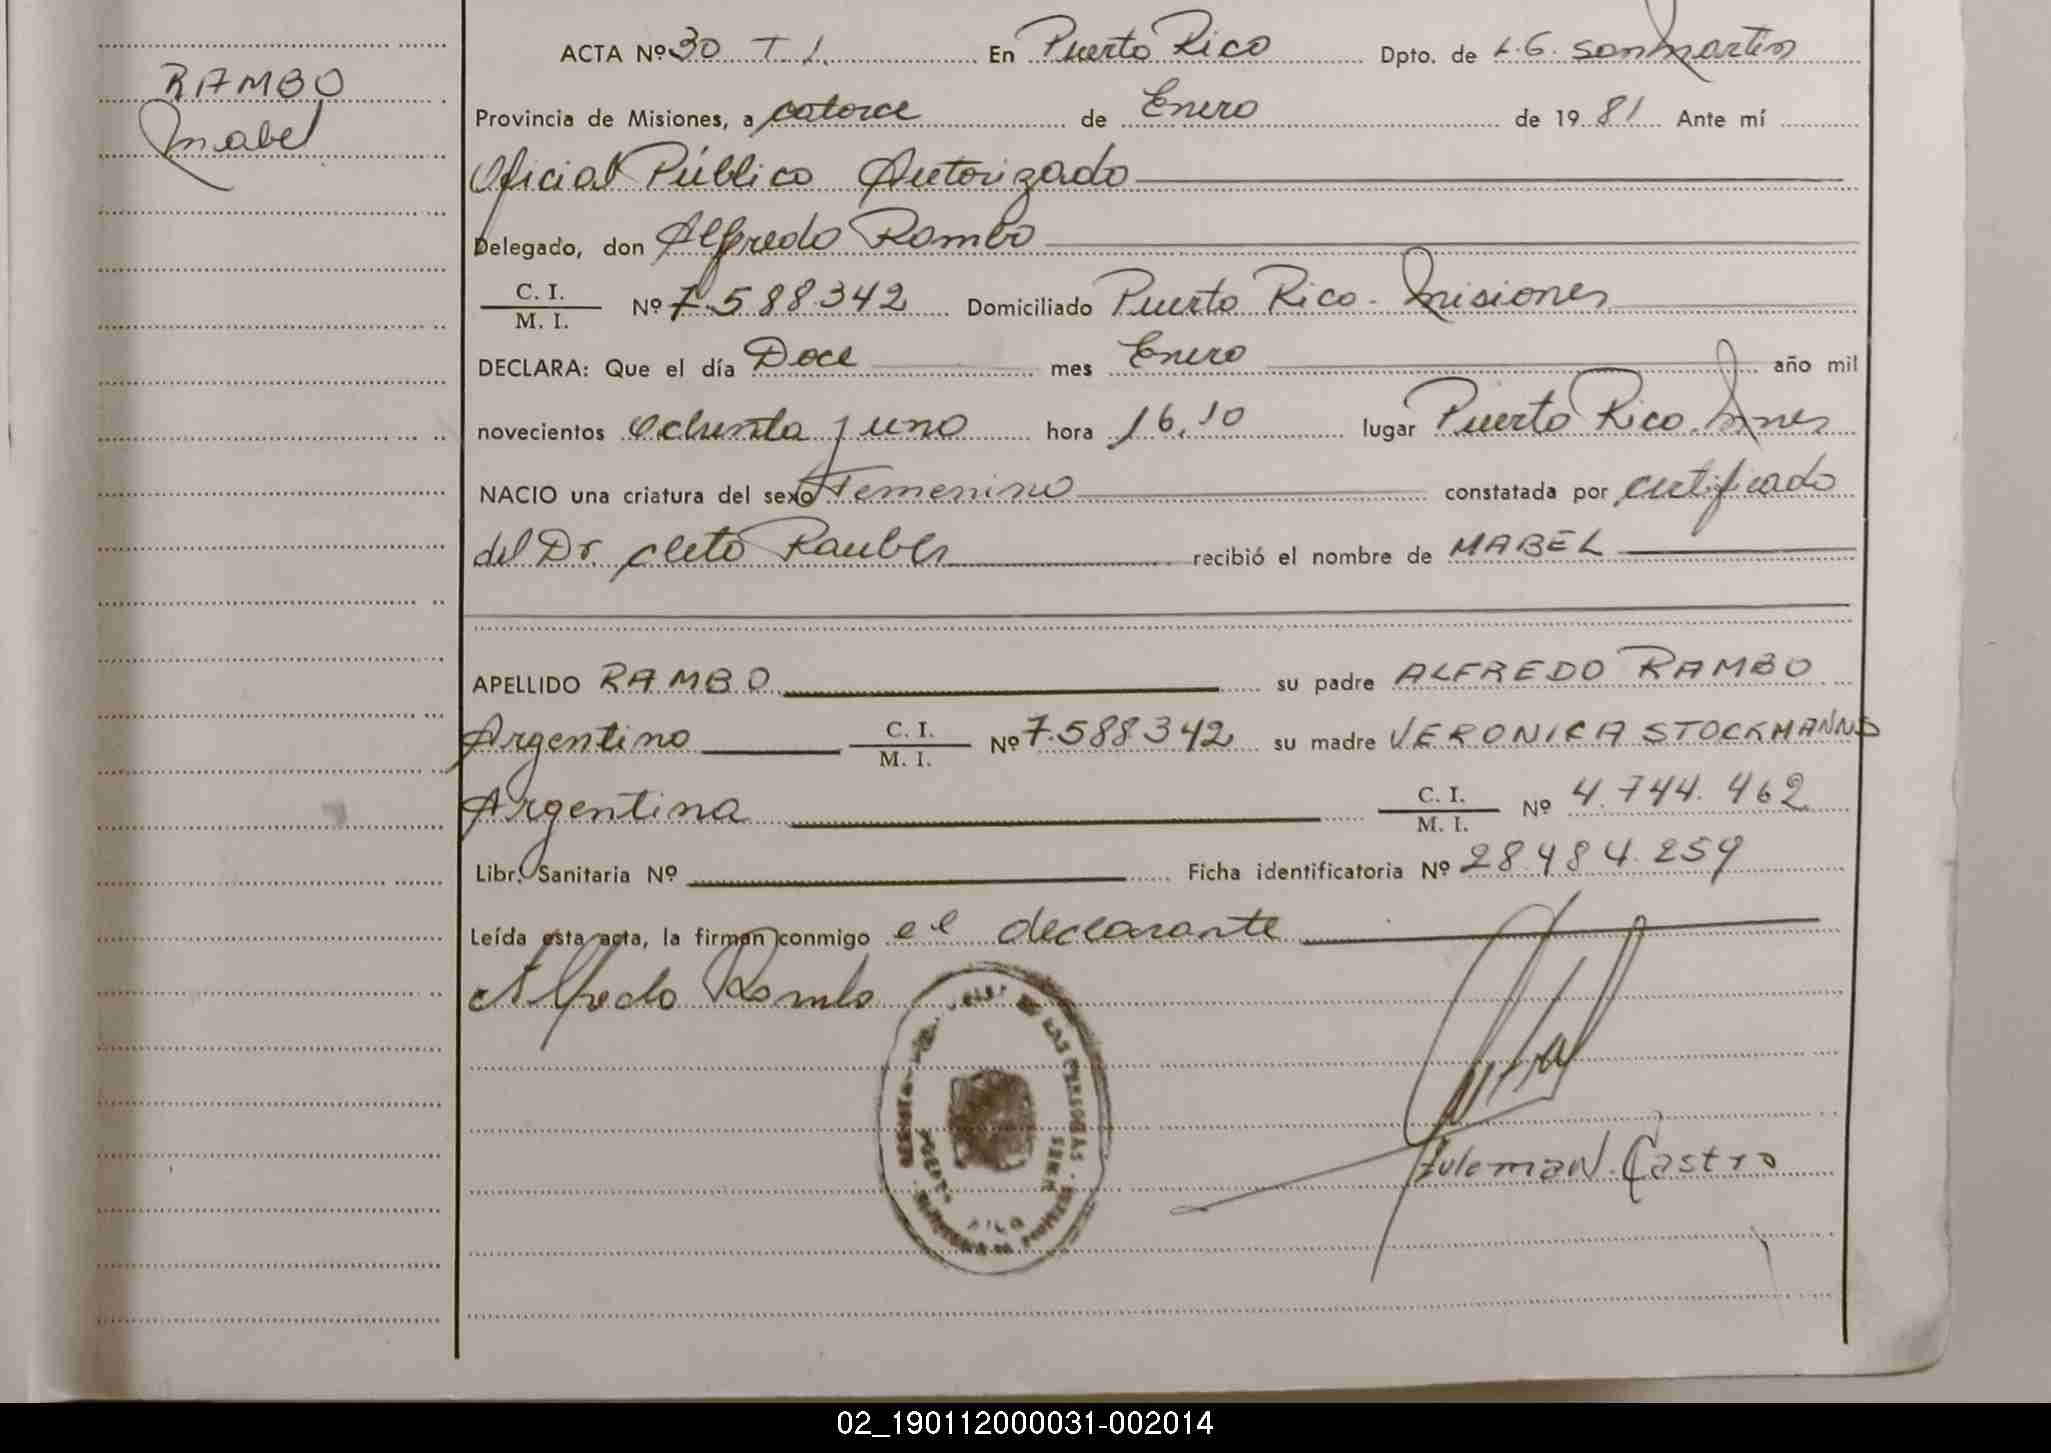 RAMBO
Mabel
ACTA Nº 30 T. I. En Puerto Rico Dpto. de L.G. San Martin
Provincia de Misiones, a catorce de Enero de 19 81 Ante mí
Oficial Público Autorizado
Delegado, don Alfredo Rambo
C. I. / M. I. Nº 7.588.342 Domiciliado Puerto Rico - Misiones
DECLARA: Que el día Doce mes Enero año mil
novecientos Ochenta y uno hora 16,10 lugar Puerto Rico. Mnes
NACIO una criatura del sexo Femenino constatada por certificado
del Dr. Cleto Rauber recibió el nombre de MABEL
APELLIDO RAMBO su padre ALFREDO RAMBO
Argentino C. I. / M. I. Nº 7.588342 su madre VERONICA STOCKMANNS
Argentina C. I. / M. I. Nº 4.744.462
Libr. Sanitaria Nº Ficha identificatoria Nº 28.484.259
Leída esta acta, la firman conmigo el declarante
Alfredo Rambo
DE LAS PERSONAS
RICO
Castro
02_190112000031-002014